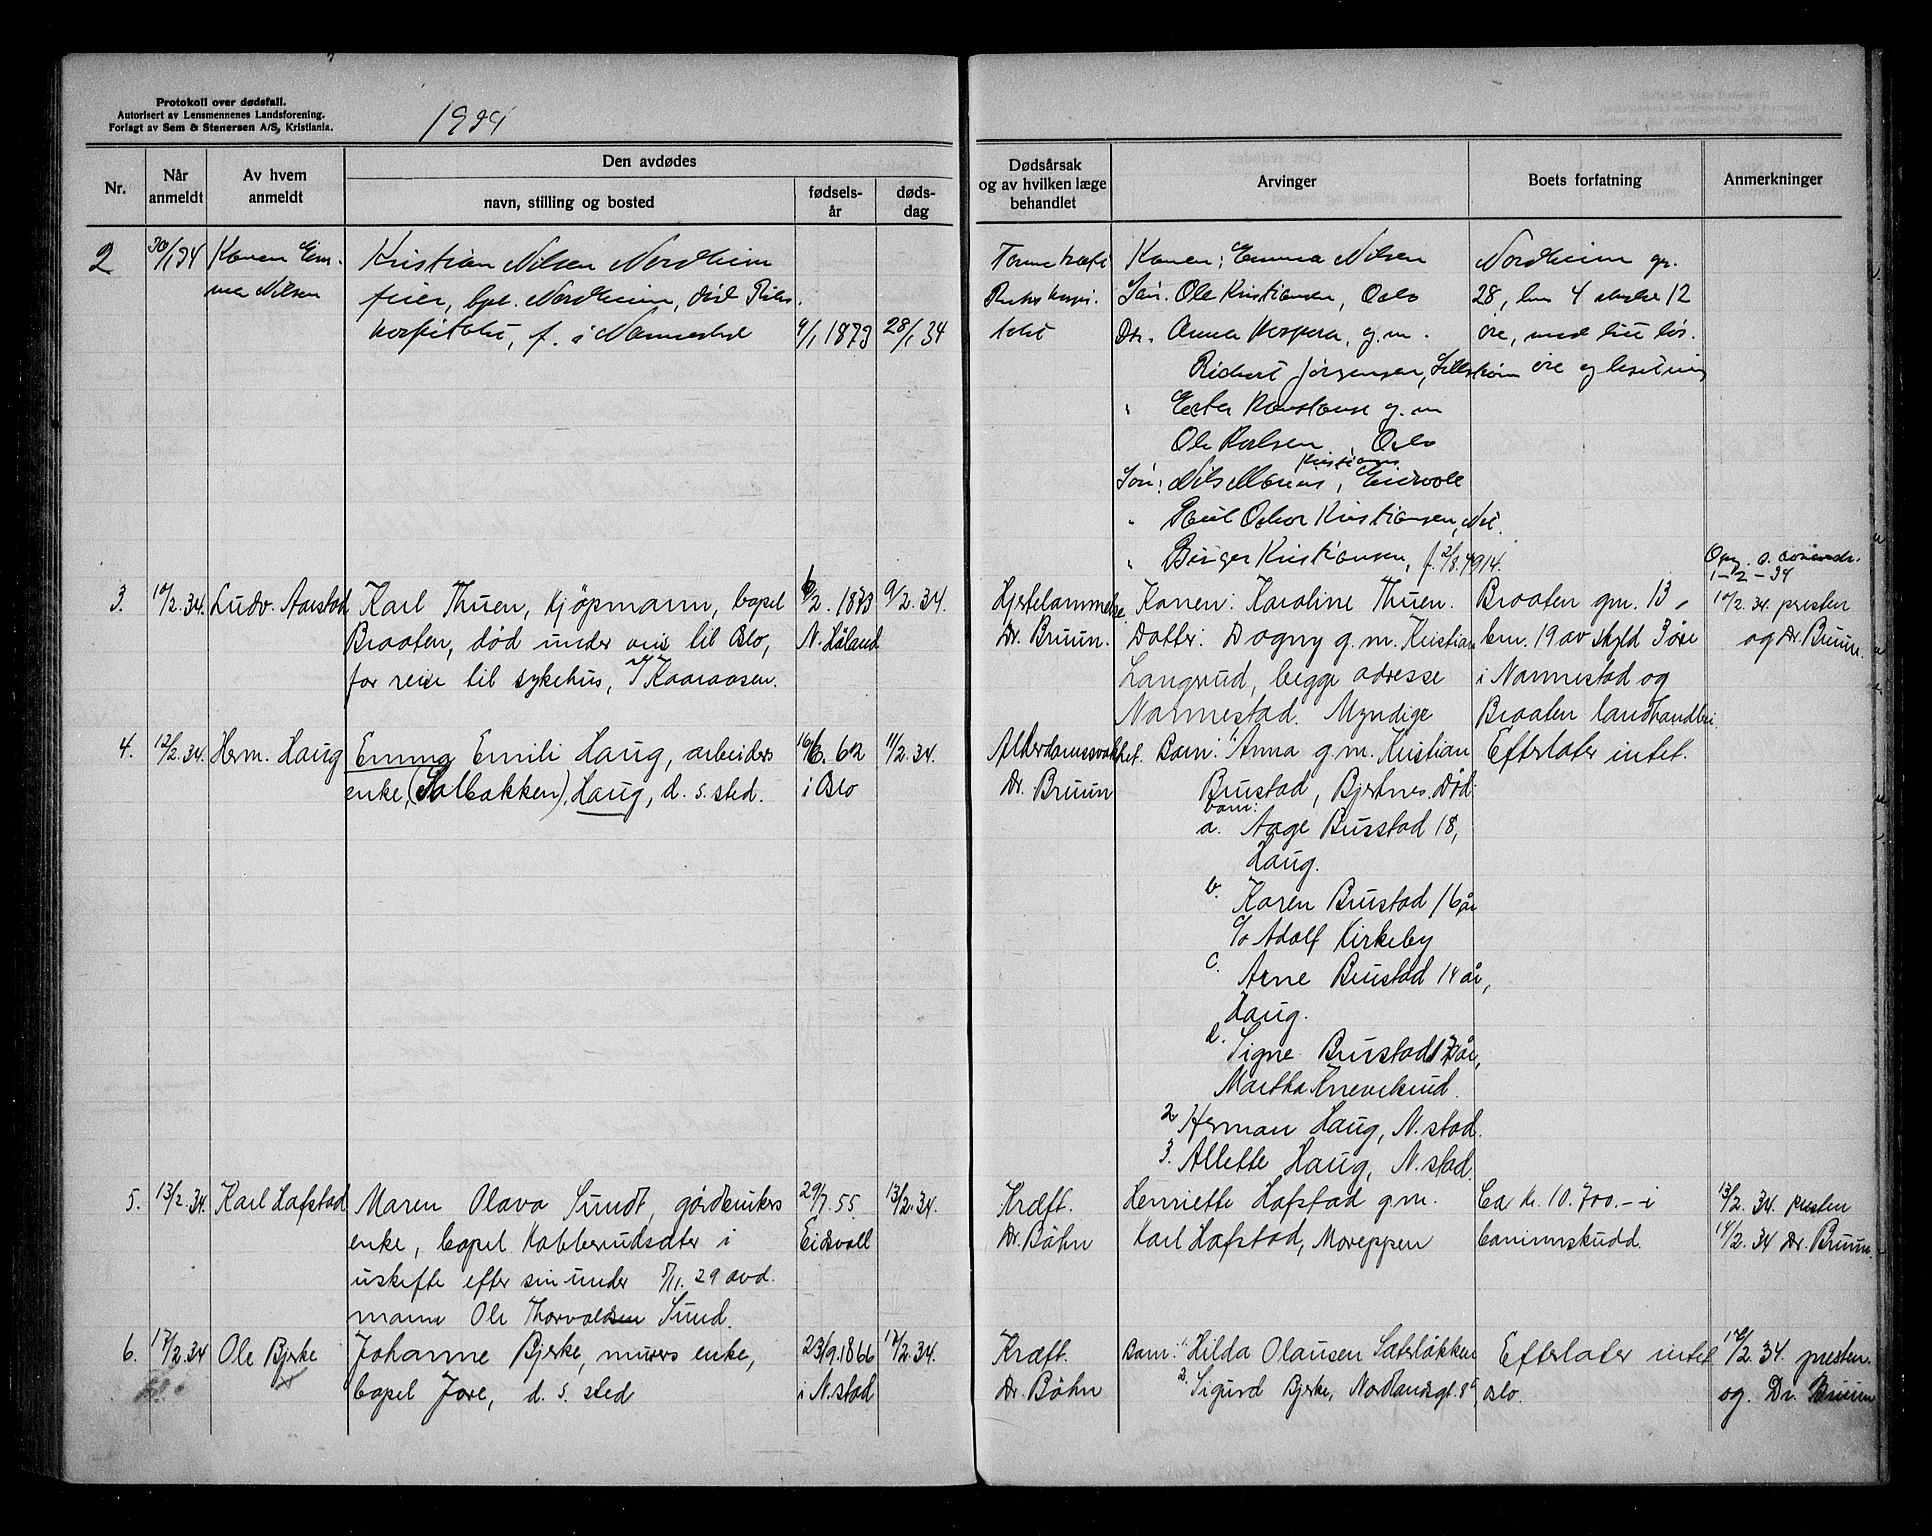 Protokoll over dødsfall.
Autorisert av Lensmennenes Landsforening.
Forlagt av Sem & Stenersen A/S, Kristiania.
1934
Nr.
Når anmeldt
Av hvem anmeldt
Den avdødes
navn, stilling og bosted
fødsels-år
døds-dag
Dødsårsak og av hvilken læge behandlet
Arvinger
Boets forfatning
Anmerkninger
2
30/1 34
Konen Em-
ma Nilsen
Kristian Nilsen Nordheim
feier, bpl. Nordheim, død Riks-
hospitalet, f. i Nannestad
9/1 1873
28/1 34
Rikshospi-
talet
Konen: Emma Nilsen
Søn: Ole Kristiansen, Oslo
Dtr. Anna Kaspara, g.m.
Rickert Jørgensen, Lillestrøm
" Ester Konstanse g.m
Ole Karlsen, Oslo
Søn: Nils Marius Kristiansen, Eidsvoll
" Paul Oskar Kristiansen,
" Birger Kristiansen, f. 2/8. 1914.
Nordheim gr.
28, bnr 4 skyld 12
øre, med litt løs-
øre og besetning
1-2-34
3.
10/2. 34.
Ludv. Aarstad
Karl Thuen, kjøpmann, bopel
Braaten, død under veis til Oslo,
for reise til sykehus, v/ Kaaraasen.
6/2. 1873
N. Høland
9/2. 34.
Hjertelammelse
Dr. Bruun.
Konen: Karoline Thuen.
Datter: Dagny g.m. Kristian
Langrud, begge adresse
Nannestad. Myndige
Braaten gnr. 13,
bnr. 19 av skyld 3 øre
i Nannestad og
Braaten landhandleri.
10/2. 34. presten
og Dr Bruun.
4.
12/2. 34.
Herm. Haug
Emma Emili Haug, arbeiders
enke, (Solbakken), Haug, d. s. sted.
16/6. 62
i Oslo
11/2. 34.
Alderdomssvakhet.
Dr. Bruun
Barn: 1 Anna g.m. Kristian
Brustad, Bjertnes. Død.
barn:
a. Aage Brustad 18,
Haug.
b. Karen Brustad 16 år
c/o Adolf Kirkeby
c. Arne Brustad 14 år,
Haug.
d. Signe Brustad 12 år,
Martha
2 Herman Haug, N.stad.
3. Allette Haug, N.stad
Efterlater intet.
5.
13/2. 34.
Karl Hafstad
Maren Olava Sundt, gårdbrukers
enke, bopel Kabberudsæter i
uskifte efter sin under 5/11. 29 avd.
mann Ole Thorvaldsen Sund.
29/7. 55.
Eidsvoll
13/2. 34.
Kræft.
Dr. Bøhn
Henriette Hafstad g.m.
Karl Hafstad, Moreppen
Ca kr. 10.700.- i
baninnskudd.
13/2. 34. presten
14/2. 34 Dr. Bruun.
6.
17/2. 34
Ole Bjerke
Johanne Bjerke, murers enke,
bopel Jore, d. s. sted
23/9. 1866
i N.stad
17/2. 34.
Kræft.
Dr. Bøhn
Barn: 1. Hilda Olausen Sæterløkken
2. Sigurd Bjerke, Nordlandsgt. 8, Oslo.
Efterlater intet
17/2. 34. presten.
og Dr. Bruun